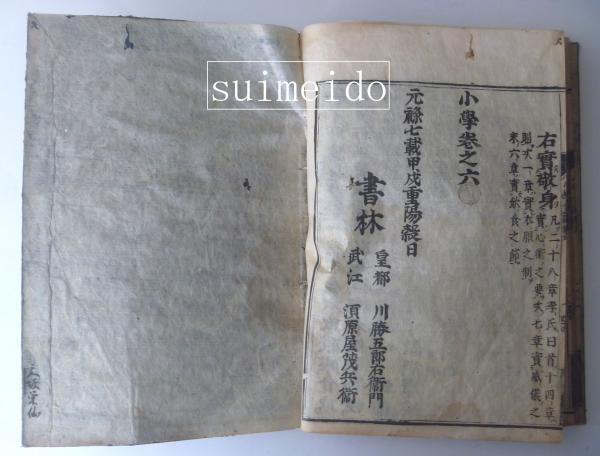 suimeido
右實敬身 凡二十八章李氏曰首十四章
實心術之要次七章實威儀之
則次一章實衣服之制
末六章實飲食之節
小學卷之六
元祿七載甲戌重陽穀日
書林
皇都 川勝五郎右衞門
武江 須原屋茂兵衞